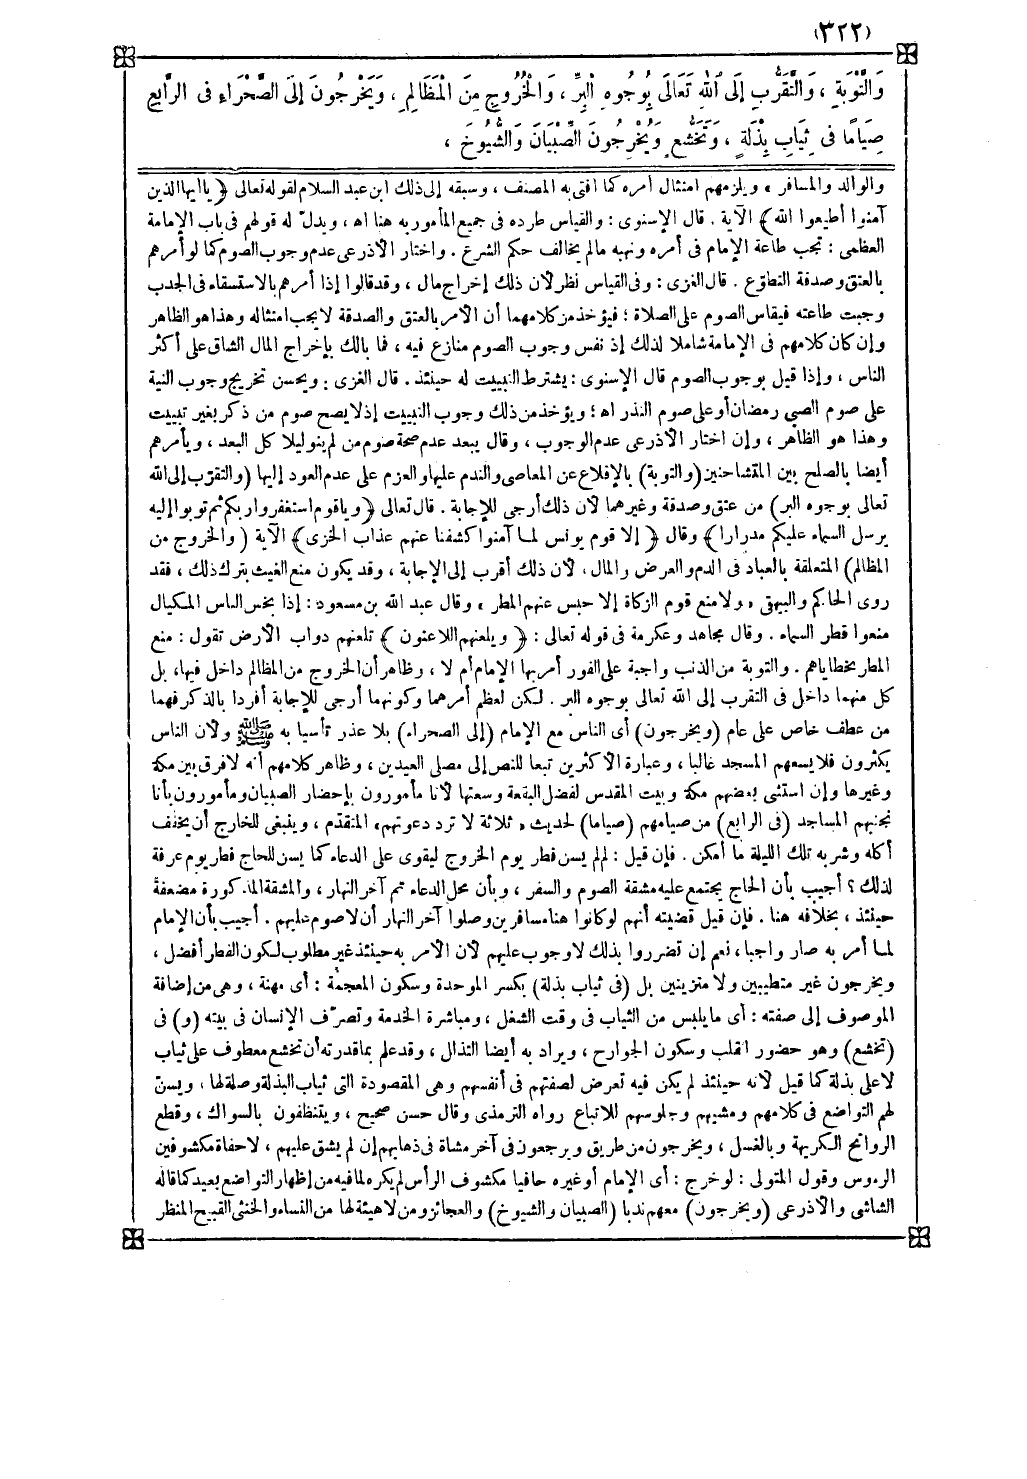 (٣٢٢)
وَالتَّوْبَةِ ، وَالتَّقَرُّبِ إِلَى اللهِ تَعَالَى بِوُجُوهِ الْبِرِّ ، وَالْخُرُوجِ مِنَ الْمَظَالِمِ ، وَيَخْرُجُونَ إِلَى الصَّحْرَاءِ فى الرَّابِعِ
صِيَامًا فى ثِيَابِ بِذْلَةٍ ، وَتَخَشُّعٍ وَيُخْرِجُونَ الصِّبْيَانَ وَالشُّيُوخَ ،
والوالد والمسافر » ويلزمهم امتثال أمره كما افتى به المصنف ، وسبقه إلى ذلك ابن عبد السلام لقوله تعالى ﴿ يا أيها الذين
آمنوا أطيعوا الله ﴾ الآية . قال الإسنوى : والقياس طرده فى جميع المأمور به هنا اه ، ويدل له قولهم فى باب الإمامة
العظمى : تجب طاعة الإمام فى أمره ونهيه مالم يخالف حكم الشرع . واختار الأذرعى عدم وجوب الصوم كما لو أمرهم
بالعتق وصدقة التطوّع . قال الغزى : وفى القياس نظر لأن ذلك إخراج مال ، وقد قالوا إذا أمرهم بالاستسقاء فى الجدب
وجبت طاعته فيقاس الصوم على الصلاة ؛ فيؤخذ من كلامهما أن الأمر بالعتق والصدقة لا يجب امتثاله وهذا هو الظاهر
وإن كان كلامهم فى الإمامة شاملا لذلك إذ نفس وجوب الصوم منازع فيه ، فما بالك بإخراج المال الشاق على أكثر
الناس ، وإذا قيل بوجوب الصوم قال الإسنوى : يشترط التبييت له حينئذ . قال الغزى : ويحسن تخريج وجوب النية
على صوم الصبى رمضان أو على صوم النذر اه ؛ ويؤخذ من ذلك وجوب التبييت إذ لا يصح صوم من ذكر بغير تبييت
وهذا هو الظاهر ، وإن اختار الأذرعى عدم الوجوب ، وقال يبعد عدم صحة صوم من لم ينو ليلا كل البعد ، ويأمرهم
أيضا بالصلح بين المتشاحنين (والتوبة) بالإقلاع عن المعاصى والندم عليها والعزم على عدم العود إليها (والتقرّب إلى الله
تعالى بوجوه البر) من عتق وصدقة وغيرهما لأن ذلك أرجى للإجابة . قال تعالى ﴿ ويا قوم استغفروا ربكم ثم توبوا إليه
يرسل السماء عليكم مدرارا ﴾ وقال ﴿ إلا قوم يونس لما آمنوا كشفنا عنهم عذاب الخزى ﴾ الآية ( والخروج من
المظالم) المتعلقة بالعباد فى الدم والعرض والمال ، لأن ذلك أقرب إلى الإجابة ، وقد يكون منع الغيث بترك ذلك ، فقد
روى الحاكم والبيهقى « ولا منع قوم الزكاة إلا حبس عنهم المطر » وقال عبد الله بن مسعود : إذا بخس الناس المكيال
منعوا قطر السماء . وقال مجاهد وعكرمة فى قوله تعالى : ﴿ ويلعنهم اللاعنون ﴾ تلعنهم دواب الأرض تقول : منع
المطر بخطاياهم . والتوبة من الذنب واجبة على الفور أمر بها الإمام أم لا ، وظاهر أن الخروج من المظالم داخل فيها ، بل
كل منهما داخل فى التقرب إلى الله تعالى بوجوه البر . لكن لعظم أمرهما وكونهما أرجى للإجابة أفردا بالذكر فهما
من عطف خاص على عام (ويخرجون) أى الناس مع الإمام (إلى الصحراء) بلا عذر تأسيا به ﷺ ولأن الناس
يكثرون فلا يسعهم المسجد غالبا ، وعبارة الأكثرين تبعا للنص إلى مصلى العيدين ، وظاهر كلامهم أنه لا فرق بين مكة
وغيرها وإن استثنى بعضهم مكة وبيت المقدس لفضل البقعة وسعتها لأنا مأمورون بإحضار الصبيان ومأمورون بأنا
نجنبهم المساجد (فى الرابع) من صيامهم (صياما) لحديث « ثلاثة لا ترد دعوتهم » المتقدّم ، وينبغى للخارج أن يخفف
أكله وشربه تلك الليلة ما أمكن . فإن قيل : لم لم يسن فطر يوم الخروج ليقوى على الدعاء كما يسن للحاج فطر يوم عرفة
لذلك ؟ أجيب بأن الحاج يجتمع عليه مشقة الصوم والسفر ، وبأن محل الدعاء ثم آخر النهار ، والمشقة المذكورة مضعفة
حينئذ ، بخلافه هنا . فإن قيل قضيته أنهم لو كانوا هنا مسافرين وصلوا آخر النهار أن لا صوم عليهم . أجيب بأن الإمام
لما أمر به صار واجبا ، نعم إن تضرروا بذلك لا وجوب عليهم لأن الأمر به حينئذ غير مطلوب لكون الفطر أفضل ،
ويخرجون غير متطيبين ولا متزينين بل (فى ثياب بذلة) بكسر الموحدة وسكون المعجمة : أى مهنة ، وهى من إضافة
الموصوف إلى صفته : أى ما يلبس من الثياب فى وقت الشغل ، ومباشرة الخدمة وتصرّف الإنسان فى بيته (و) فى
(تخشع) وهو حضور القلب وسكون الجوارح ، ويراد به أيضا التذلل ، وقد علم بما قدرته أن تخشع معطوف على ثياب
لا على بذلة كما قيل لأنه حينئذ لم يكن فيه تعرض لصفتهم فى أنفسهم وهى المقصودة التى ثياب البذلة وصلة لها ، ويسنّ
لهم التواضع فى كلامهم ومشيهم وجلوسهم للاتباع رواه الترمذى وقال حسن صحيح ، ويتنظفون بالسواك ، وقطع
الروائح الكريهة وبالغسل ، ويخرجون من طريق ويرجعون فى آخر مشاة فى ذهابهم إن لم يشق عليهم ، لا حفاة مكشوفين
الرءوس وقول المتولى : لو خرج : أى الإمام أو غيره حافيا مكشوف الرأس لم يكره لما فيه من إظهار التواضع بعيد كما قاله
الشاشى والأذرعى (ويخرجون) معهم ندبا (الصبيان والشيوخ) والعجائز ومن لا هيئة لها من النساء والخنثى القبيح المنظر